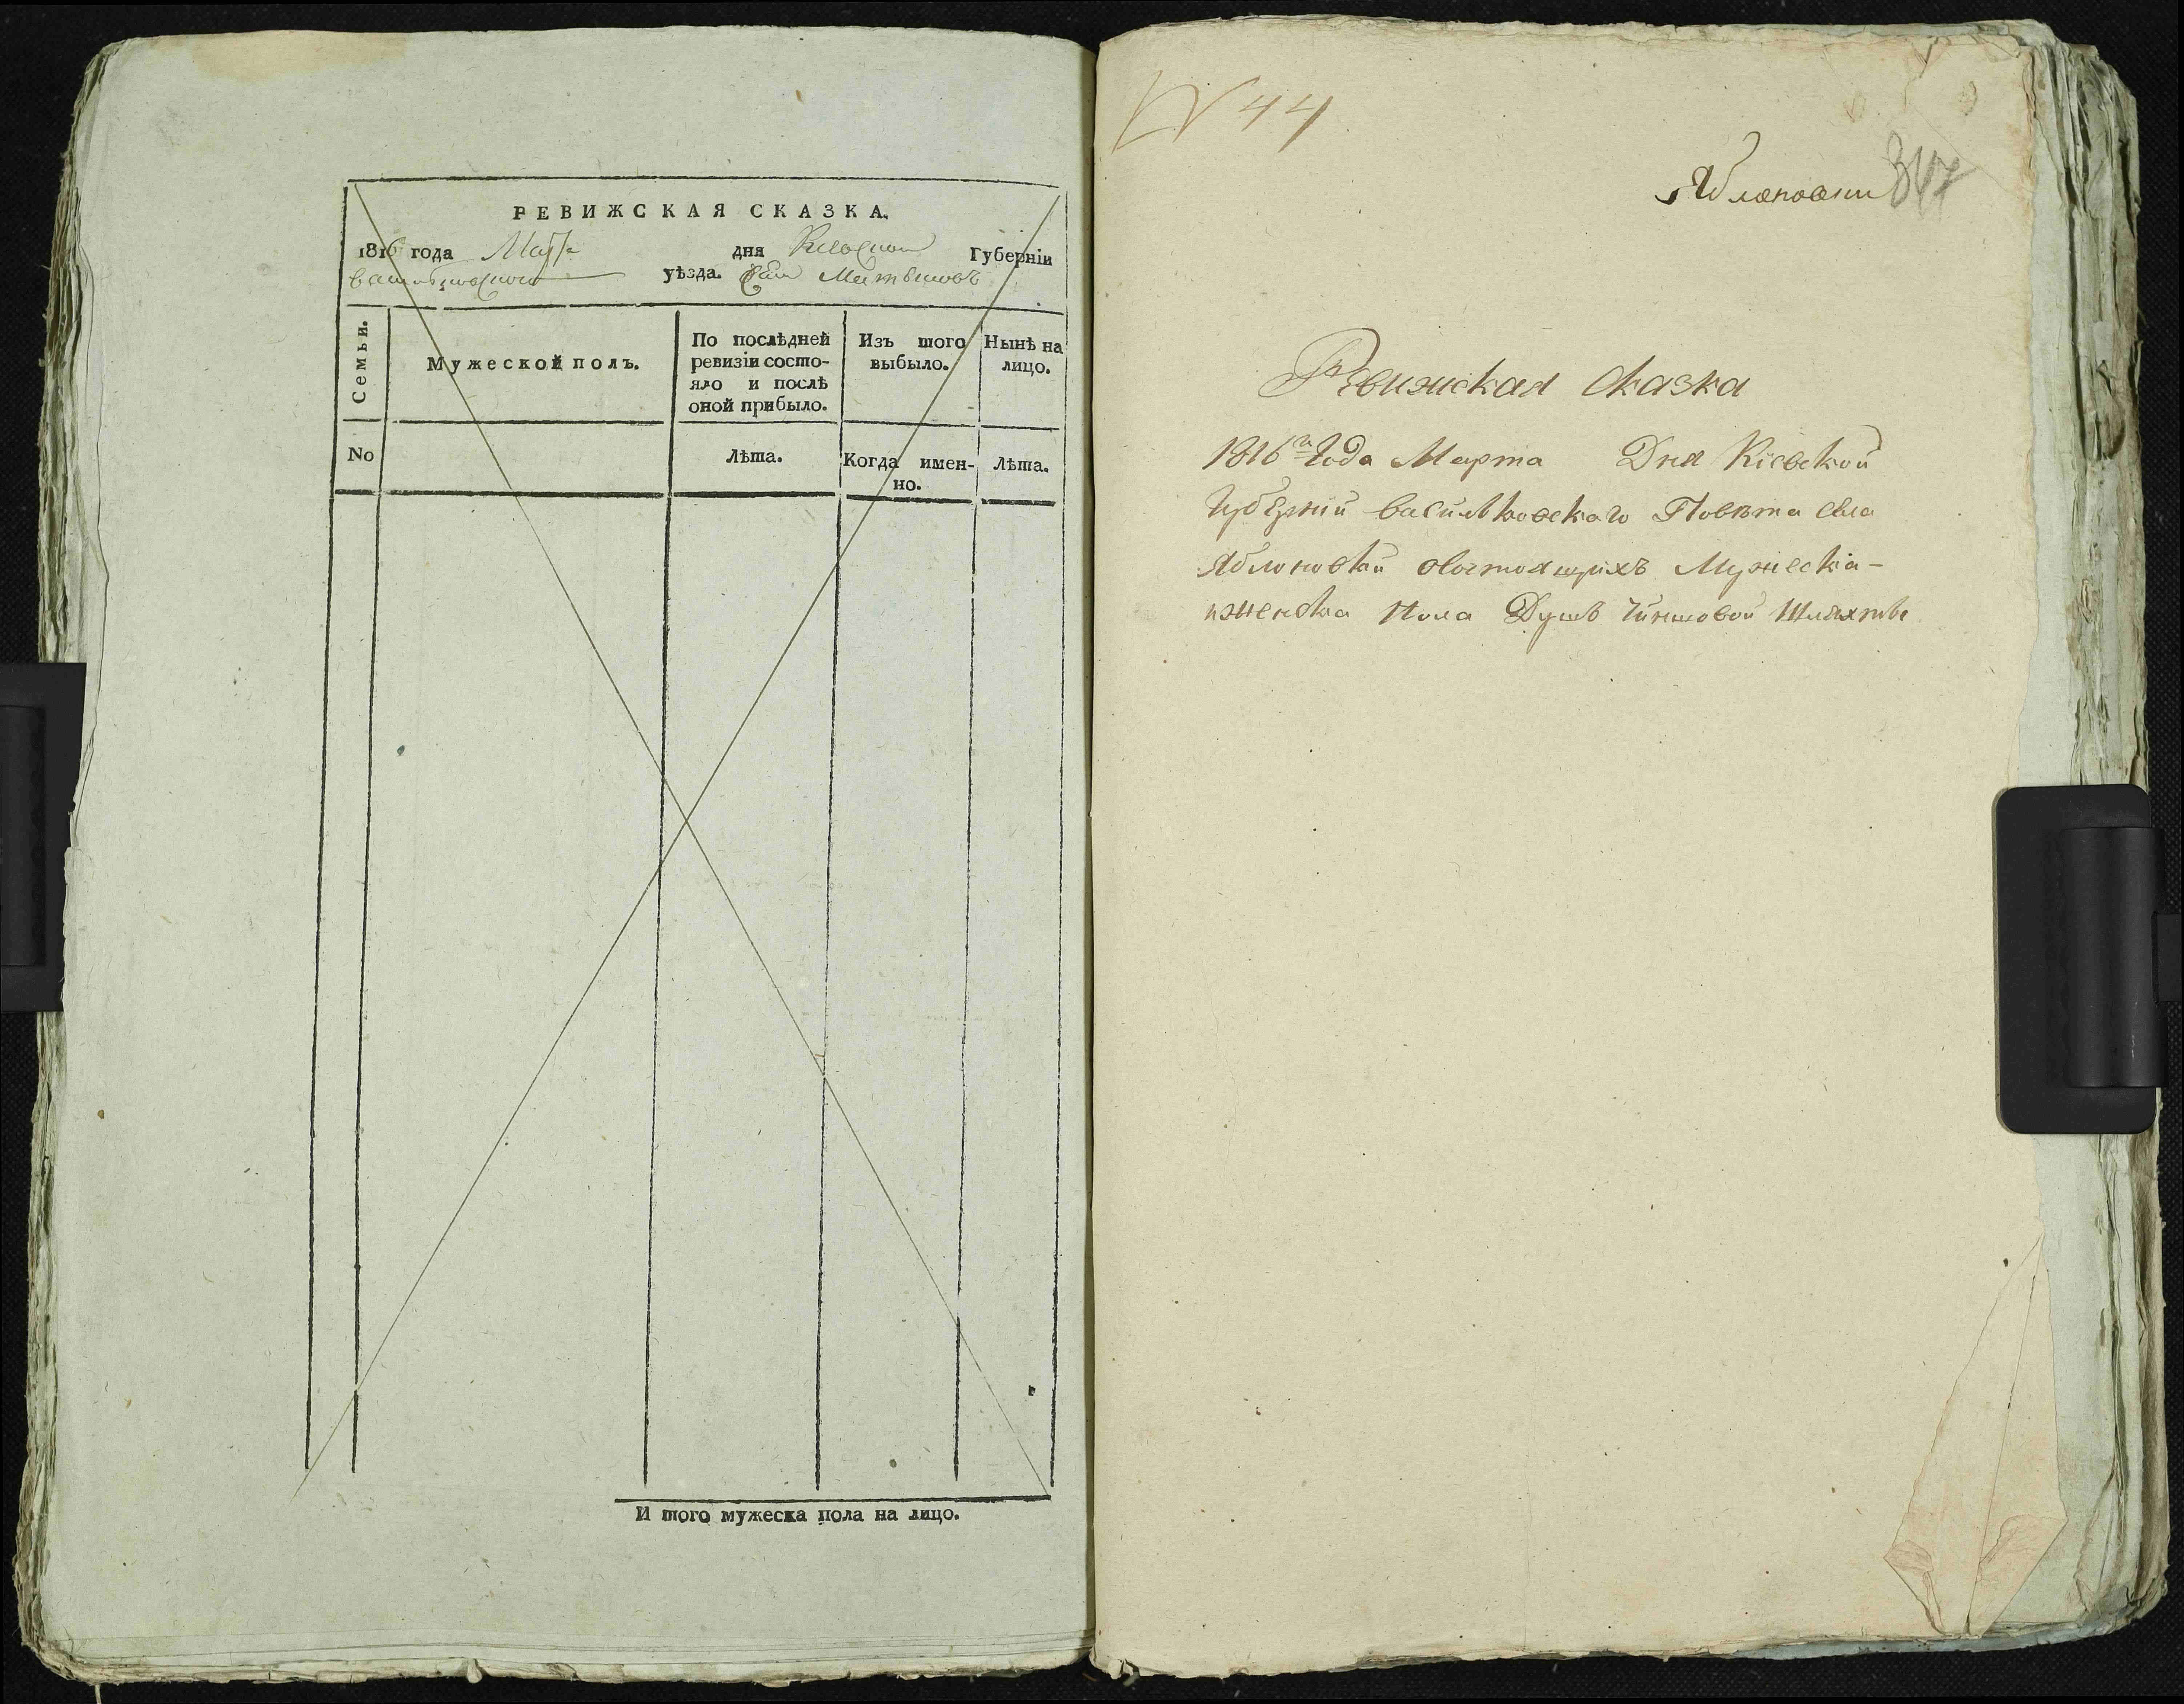 РЕВИЖСКАЯ СКАЗКА.
1816 года Марта дня Киевской Губерніи
васильковского уѣзда. Села
Семьи.
Мужеской полъ.
По послѣдней
ревизіи состо-
яло и послѣ
оной прибыло.
Изъ того
выбыло.
Нынѣ на
лицо.
No
Лѣта.
Когда имен-
но.
Лѣта.
И того мужеска пола на лицо.
N 44
Яблоновки
347
Ревижская Сказка
1816го Года Марта Дня Кіевской
Губерніи васильковскаго Повѣта села
Яблоновки состоящихъ Мужеска-
иженска Пола Душъ Чиншовой Шляхты